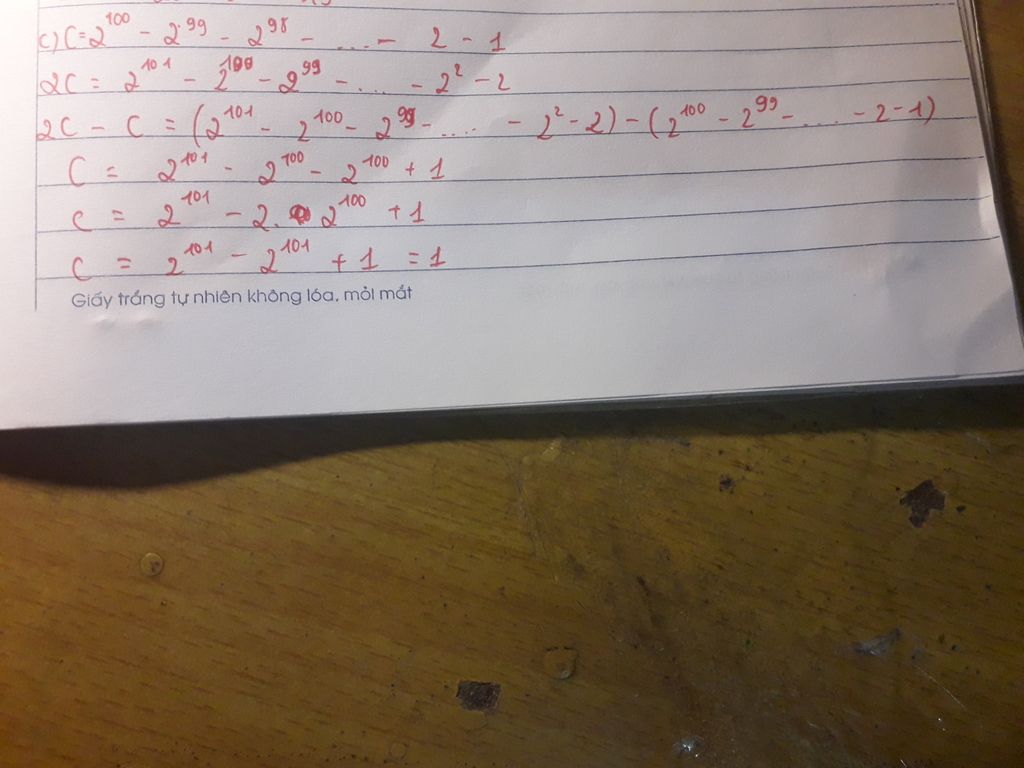 c) C = 2^100 - 2^99 - 2^98 - .... - 2 - 1
2C = 2^101 - 2^100 - 2^99 - .... - 2^2 - 2
2C - C = (2^101 - 2^100 - 2^99 - .... - 2^2 - 2) - (2^100 - 2^99 - .... - 2 - 1)
C = 2^101 - 2^100 - 2^100 + 1
C = 2^101 - 2. 2^100 + 1
C = 2^101 - 2^101 + 1 = 1
Giấy trắng tự nhiên không lóa, mỏi mắt